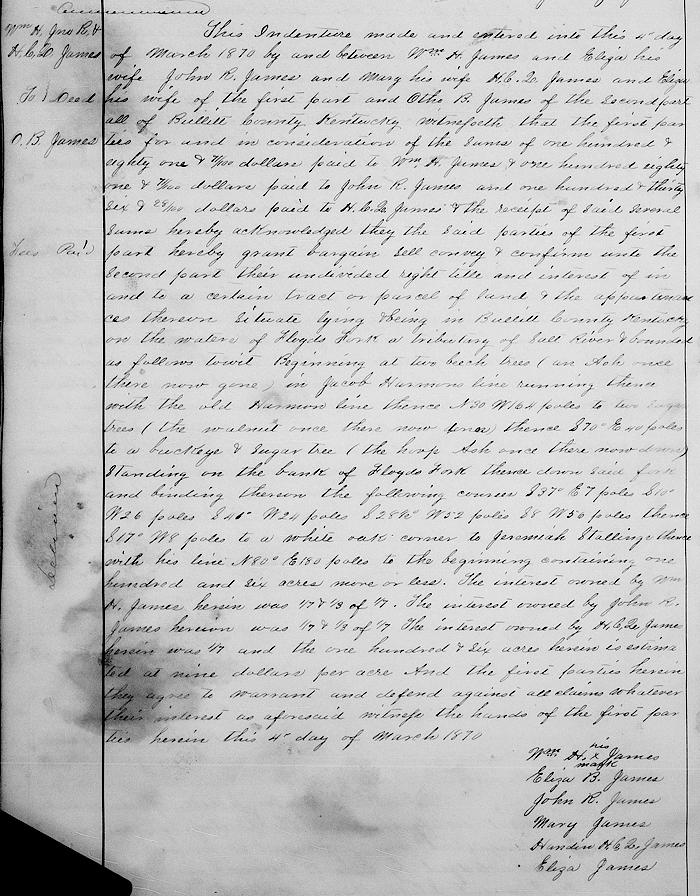 Wm H. Jno R. &
H. C. Q. James
To } Deed
O. B. James
Fees Paid
This Indenture made and entered into this 4" day
of March 1870 by and between Wm H. James and Eliza his
wife John R. James and Mary his wife H. C. Q. James and Eliza
his wife of the first part and Otho B. James of the Second part
all of Bullitt County Kentucky witnesseth that the first par
ties for and in consideration of the Sums of one hundred &
eighty one & /100 dollars paid to Wm H. James & one hundred eighty
one & /100 dollars paid to John R. James and one hundred & thirty
Six & 28/100 dollars paid to H. C. Q. James & the receipt of Said Several
Sums hereby acknowledged they the Said parties of the first
part hereby grant bargain Sell convey & confirm unto the
Second part their undivided right title and interest of in
and to a certain tract or parcel of land & the appurtenan
ces thereon Situate lying & being in Bullitt County Kentucky
on the waters of Floyds Fork a tributary of Salt River & bounded
as follows towit Beginning at two beech trees (an Ash once
there now gone) in Jacob Harmons line running thence
with the old Harmon line thence N30 W164 poles to two Sugar
trees (the walnut once there now ) thence S70° E40 poles
to a buckeye & Sugar tree (the hoop Ash once there now down)
Standing on the bank of Floyds Fork thence down Said fork
and binding thereon the following courses S37° E7 poles S10°
W26 poles S46° W24 poles S28½° W52 poles S8 W50 poles thence
S17° W8 poles to a white oak corner to Jeremiah Stallings thence
with his line N80° E130 poles to the beginning containing one
hundred and Six acres more or less. The interest owned by Wm
H. James herein was 1/7 & 1/3 of 1/7. The interest owned by John R.
James hereon was 1/7 & 1/3 of 1/7 The interest owned by H. C. Q. James
herein was 1/7 and the one hundred & Six acres herein is estima
ted at nine dollars per acre And the first parties herein
they agree to warrant and defend against all claims whatever
their interest as aforesaid witness the hands of the first par
ties herein this 4" day of March 1870
his
Wm H. x James
mark
Eliza B. James
John R. James
Mary James
Hardin H. C. Q. James
Eliza James